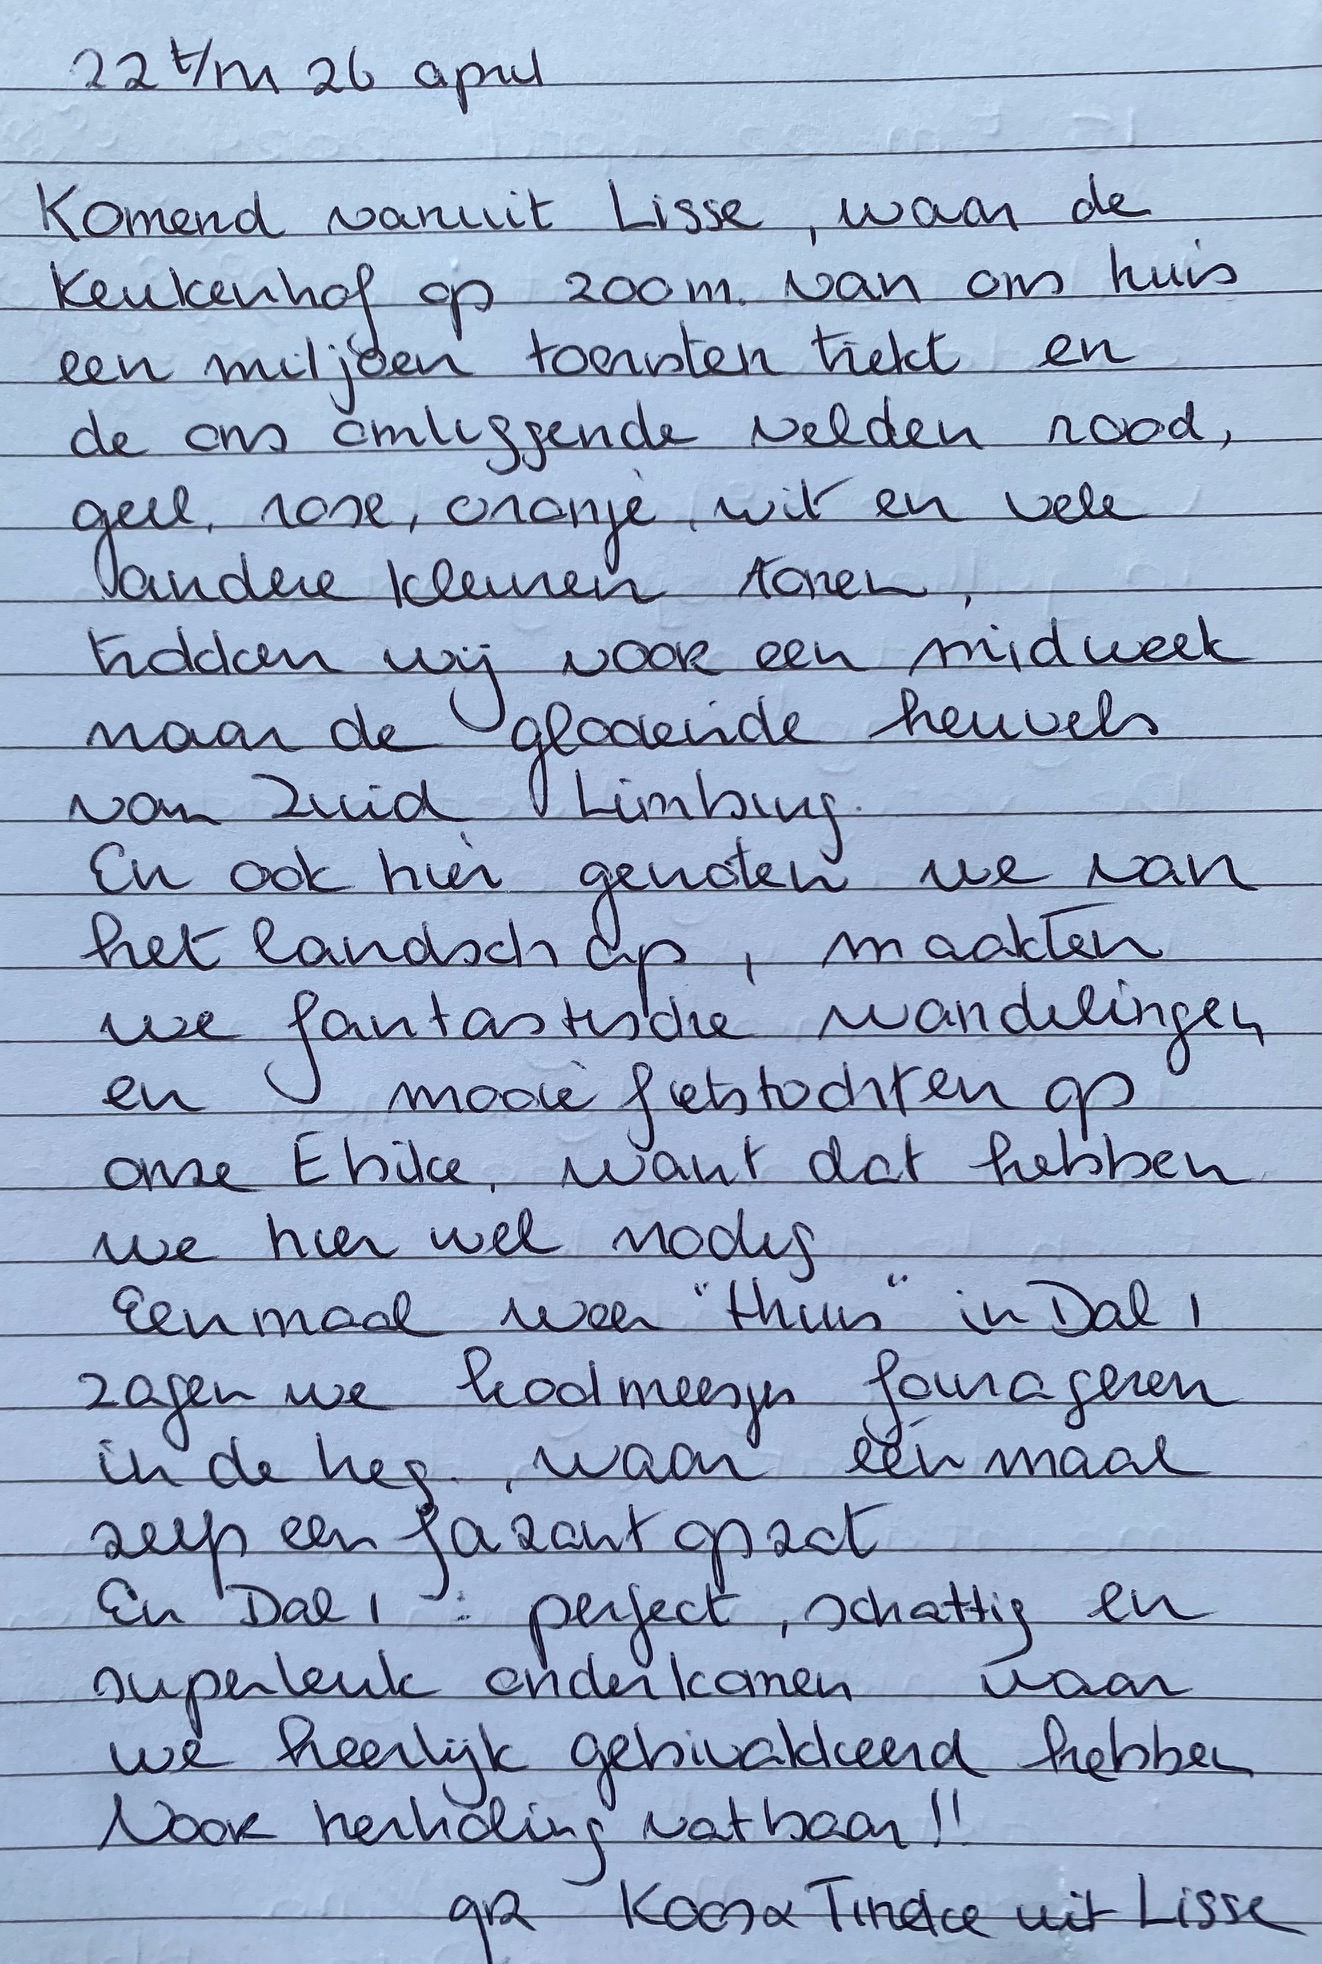 22 t/m 26 april
Komend vanuit Lisse, waar de
Keukenhof op 200 m. van ons huis
een miljoen toeristen trekt en
de ons omliggende velden rood,
geel, rose, oranje, wit en vele
andere kleuren tonen,
trokken wij voor een midweek
naar de glooiende heuvels
van Zuid Limburg.
En ook hier genoten we van
het landschap, maakten
we fantastische wandelingen
en mooie fietstochten op
onze Ebike, want dat hebben
we hier wel nodig
Eenmaal weer "thuis" in Dal 1
zagen we koolmeesjes fourageren
in de heg, waar éénmaal
zelfs een fazant op zat
En Dal 1 : perfect, schattig en
superleuk onderkomen waar
we heerlijk gebivakkeerd hebben
Voor herhaling vatbaar!!
gr Koos & Tineke uit Lisse